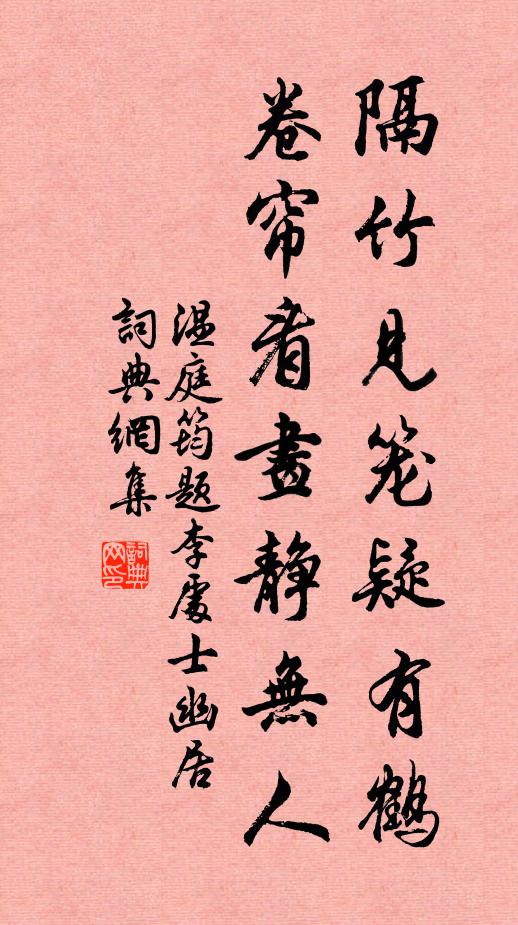 隔竹见笼疑有鹤
卷帘看畫静無人
温庭筠题李處士幽居
詞典網集
詞典网印